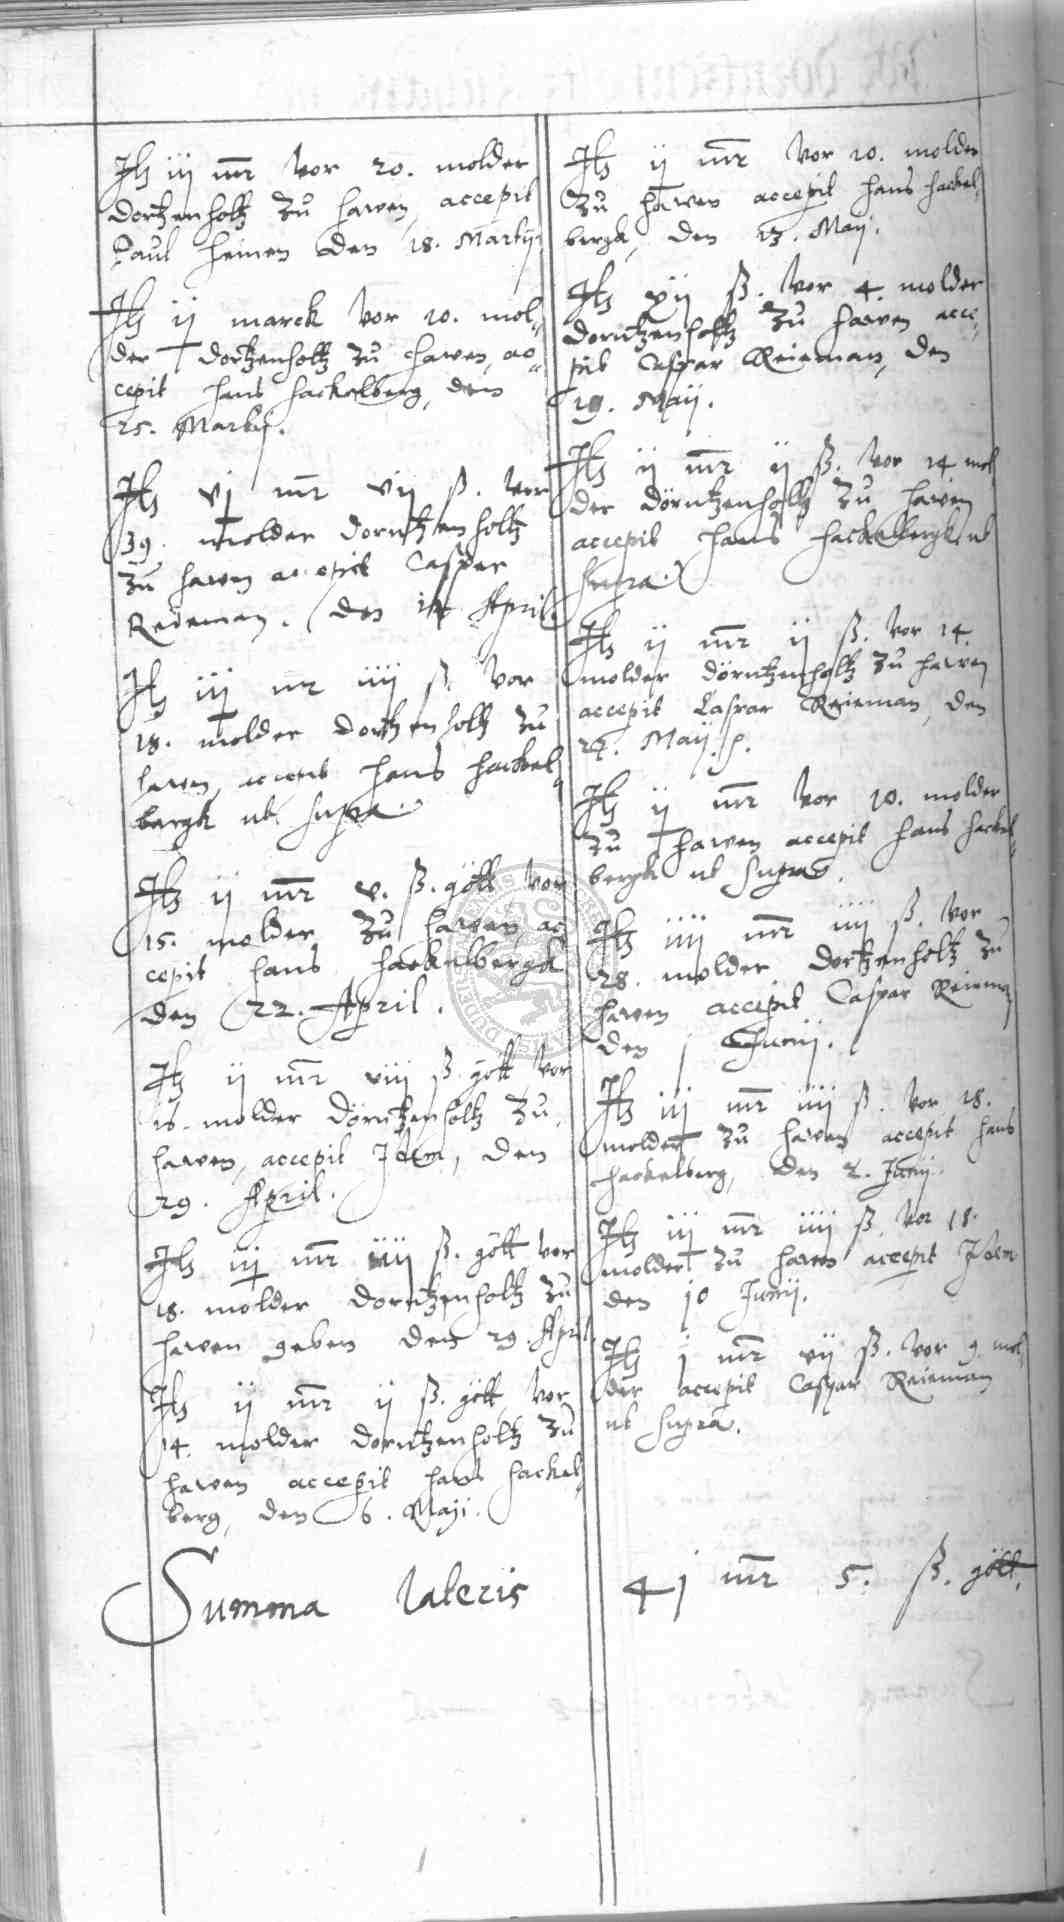 Itz iij mr vor 20. molder
dortzenholtz zu hawen, accepit
Paul Heinen den 18. Martij
Itz ij marck vor 10. mol„
der dortzenholtz zu hawen, ac„
cepit Hans Hackelberg, den
25. Martij.
Itz vj mr vij ß. vor
39. molder dorntzenholtz
zu hawen accepit Casper
Reieman. den 14 April
Itz iij mr iiij ß vor
18. molder dortzenholtz zu
hawen, accepit Hans Hackel„
bergk ut supra.
Itz ij mr v. ß. gött vor
15. molder zu hawen ac
cepit Hans Hackelbergk
den 22. April.
Itz ij mr viij ß gött vor
16. molder dörntzenholtz zu
hawen, accepit Idem, den
29. April.
Itz iij mr iiij ß. gött vor
18. molder dorntzenholtz zu
hawen geben den 29. April.
Itz ij mr ij ß. gött, vor
14. molder dorntzenholtz zu
hawen accepit Hans Hackel„
berg, den 6. Maji.
Itz ij mr vor 10. molder
zu hawen accepit Hans Hackel„
bergk, den 13. Maij.
Itz xij ß. vor 4. molder
dorntzenholtz zu hawen acce„
pit Caspar Reieman, den
19. Maij.
Itz ij mr ij ß. vor 14 mol
der dörntzenholtz zu hawen
accepit Hans Hackelbergk ut
supra.
Itz ij mr ij ß. vor 14.
molder dörntzenholtz zu hawen
accepit Caspar Reieman, den
Maij.
Itz ij mr vor 10. molder
zu hawen accepit Hans Hackel„
bergk ut supra.
Itz iiij mr iiij ß. vor
28. molder dortzenholtz zu
hawen accepit Caspar Reieman
den j Junij.
Itz iij mr iiij ß. vor 18.
molder zu hawen accepit Hans
Hackelberg, den 2. Junij.
Itz iij mr iiij ß vor 18.
molder zu hawen accepit Idem
den 10 Junij.
Itz j mr vij ß. vor 9. mol„
der accepit Caspar Reieman
ut supra.
Summa lateris 41 mr 5. ß. gött.